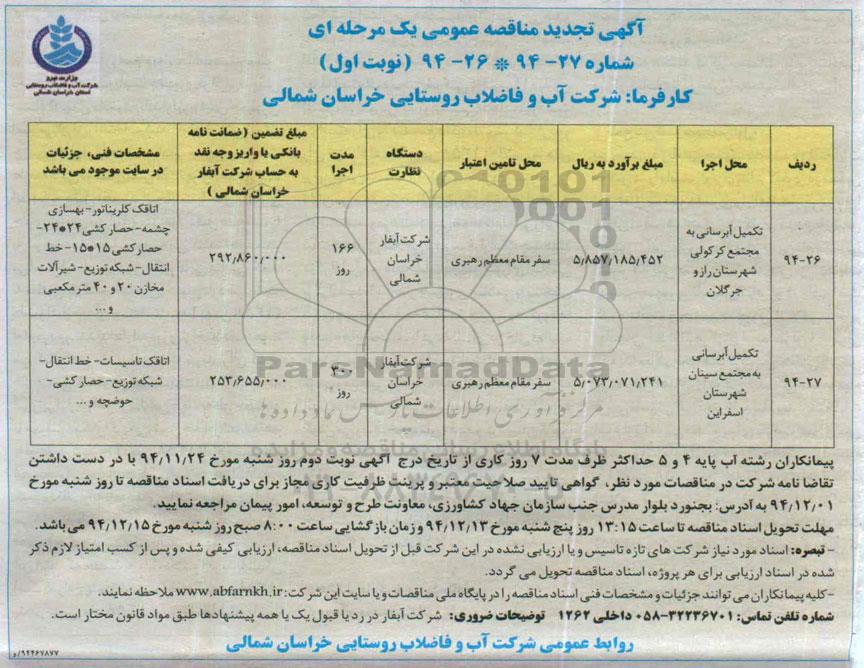 آگهی تجدید مناقصه عمومی یک مرحله ای
شماره ۲۷- ۹۴ * ۲۶- ۹۴ (نوبت اول)
کارفرما: شرکت آب و فاضلاب روستایی خراسان شمالی
وزارت نیرو
شرکت آب و فاضلاب روستایی
استان خراسان شمالی
ردیف
محل اجرا
مبلغ برآورد به ریال
محل تامین اعتبار
دستگاه نظارت
مدت اجرا
مبلغ تضمین (ضمانت نامه بانکی یا واریز وجه نقد به حساب شرکت آبفار خراسان شمالی)
مشخصات فنی، جزئیات در سایت موجود می باشد
۹۴-۲۶
تکمیل آبرسانی به مجتمع کرکولی شهرستان رازو جرگلان
۵٫۸۵۷٫۱۸۵٫۴۵۲
سفر مقام معظم رهبری
شرکت آبفار خراسان شمالی
۱۶۶ روز
۲۹۲٫۸۶۰٫۰۰۰
اتاقک کلریناتور- بهسازی چشمه- حصارکشی ۲۴*۲۴- حصارکشی ۱۵*۱۵- خط انتقال- شبکه توزیع- شیرآلات مخازن ۲۰ و ۴۰ متر مکعبی و...
۹۴-۲۷
تکمیل آبرسانی به مجتمع سینان شهرستان اسفراین
۵٫۰۷۳٫۰۷۱٫۲۴۱
سفر مقام معظم رهبری
شرکت آبفار خراسان شمالی
۳۰۰ روز
۲۵۳٫۶۵۵٫۰۰۰
اتاقک تاسیسات- خط انتقال- شبکه توزیع- حصارکشی- حوضچه و...
ParsNamadData
مرکز فرآوری اطلاعات پارس نماد داده ها
پیمانکاران رشته آب پایه ۴ و ۵ حداکثر ظرف مدت ۷ روز کاری از تاریخ درج آگهی نوبت دوم روز شنبه مورخ ۹۴,۱۱,۲۴ با در دست داشتن
تقاضا نامه شرکت در مناقصات مورد نظر، گواهی تایید صلاحیت معتبر و پرینت ظرفیت کاری مجاز برای دریافت اسناد مناقصه تا روز شنبه مورخ
۹۴,۱۲,۰۱ به آدرس: بجنورد بلوار مدرس جنب سازمان جهاد کشاورزی، معاونت طرح و توسعه، امور پیمان مراجعه نمایید.
مهلت تحویل اسناد مناقصه تا ساعت ۱۳:۱۵ روز پنج شنبه مورخ ۹۴,۱۲,۱۳ و زمان بازگشایی ساعت ۸:۰۰ صبح روز شنبه مورخ ۹۴,۱۲,۱۵ می باشد.
- تبصره: اسناد مورد نیاز شرکت های تازه تاسیس و یا ارزیابی نشده در این شرکت قبل از تحویل اسناد مناقصه، ارزیابی کیفی شده و پس از کسب امتیاز لازم ذکر
شده در اسناد ارزیابی برای هر پروژه، اسناد مناقصه تحویل می گردد.
- کلیه پیمانکاران می توانند جزئیات و مشخصات فنی اسناد مناقصه را در پایگاه ملی مناقصات و یا سایت این شرکت: www.abfarnkh.ir ملاحظه نمایند.
شماره تلفن تماس: ۳۲۲۳۶۷۰۱-۰۵۸ داخلی ۱۲۶۲ توضیحات ضروری: شرکت آبفار در رد یا قبول یک یا همه پیشنهادها طبق مواد قانون مختار است.
روابط عمومی شرکت آب و فاضلاب روستایی خراسان شمالی
۹۴۴۶۷۸۷۷/و